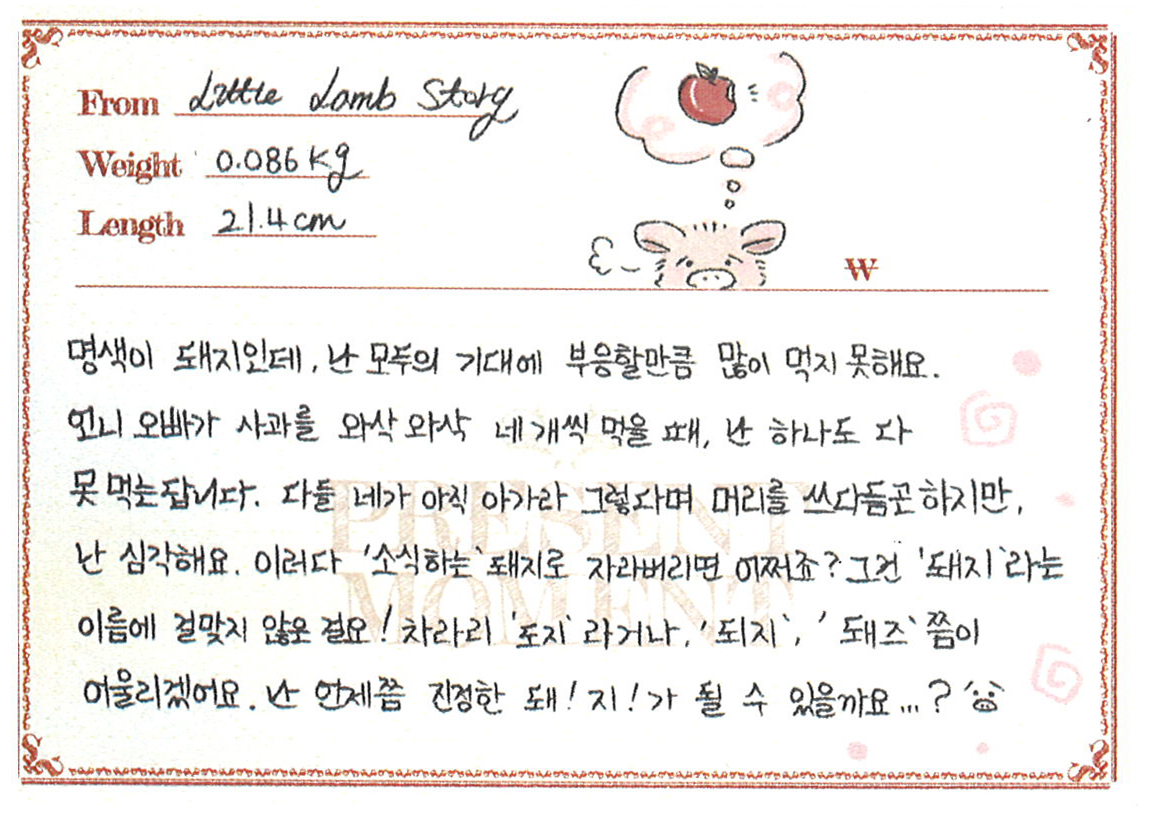 From Little Lamb Story
Weight 0.086 Kg
Length 21.4 cm
W
명색이 돼지인데, 난 모두의 기대에 부응할만큼 많이 먹지 못해요.
언니 오빠가 사과를 와삭 와삭 네 개씩 먹을 때, 난 하나도 다
못 먹는답니다. 다들 네가 아직 아가라 그렇다며 머리를 쓰다듬곤 하지만,
난 심각해요. 이러다 '소식하는' 돼지로 자라버리면 어쩌죠? 그건 '돼지'라는
이름에 걸맞지 않은 걸요! 차라리 '도지' 라거나, '되지', '돼즈'쯤이
어울리겠어요. 난 언제쯤 진정한 돼! 지! 가 될 수 있을까요...?
PRESENT
MOMENT